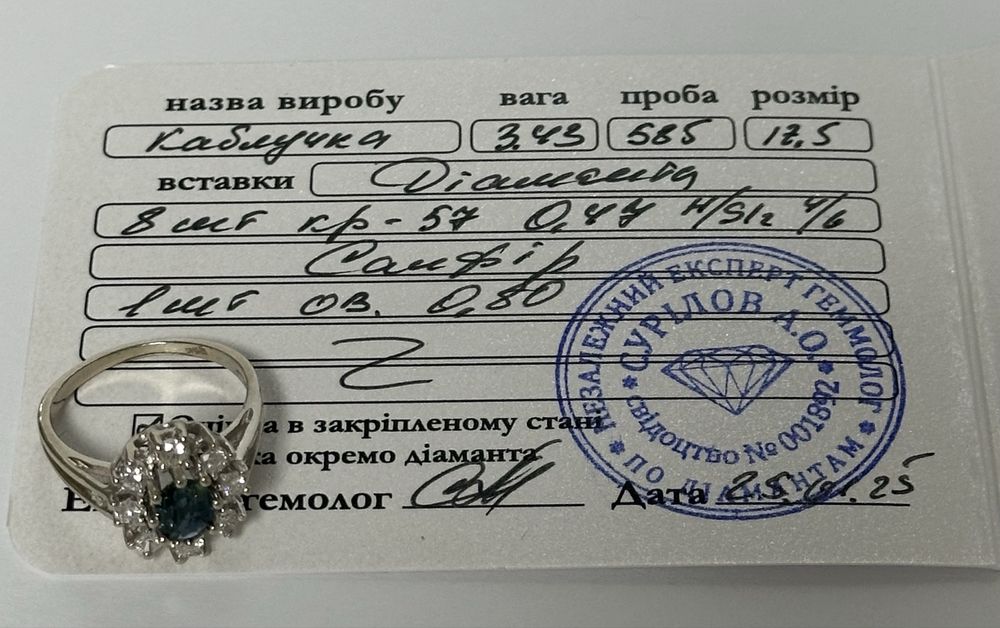 назва виробу вага проба розмір
Каблучка 3.43 585 17,5
вставки Діаманта
8 шт кр-57 0,47 H/SI2 4/6
Сапфір
1 шт ов. 0,80
Z
в закріпленому стані
окремо діаманта
гемолог Дата 25
НЕЗАЛЕЖНИЙ ЕКСПЕРТ ГЕММОЛОГ
СУРІЛОВ А.О.
свідоцтво № 001892
ПО ДІАМАНТАМ